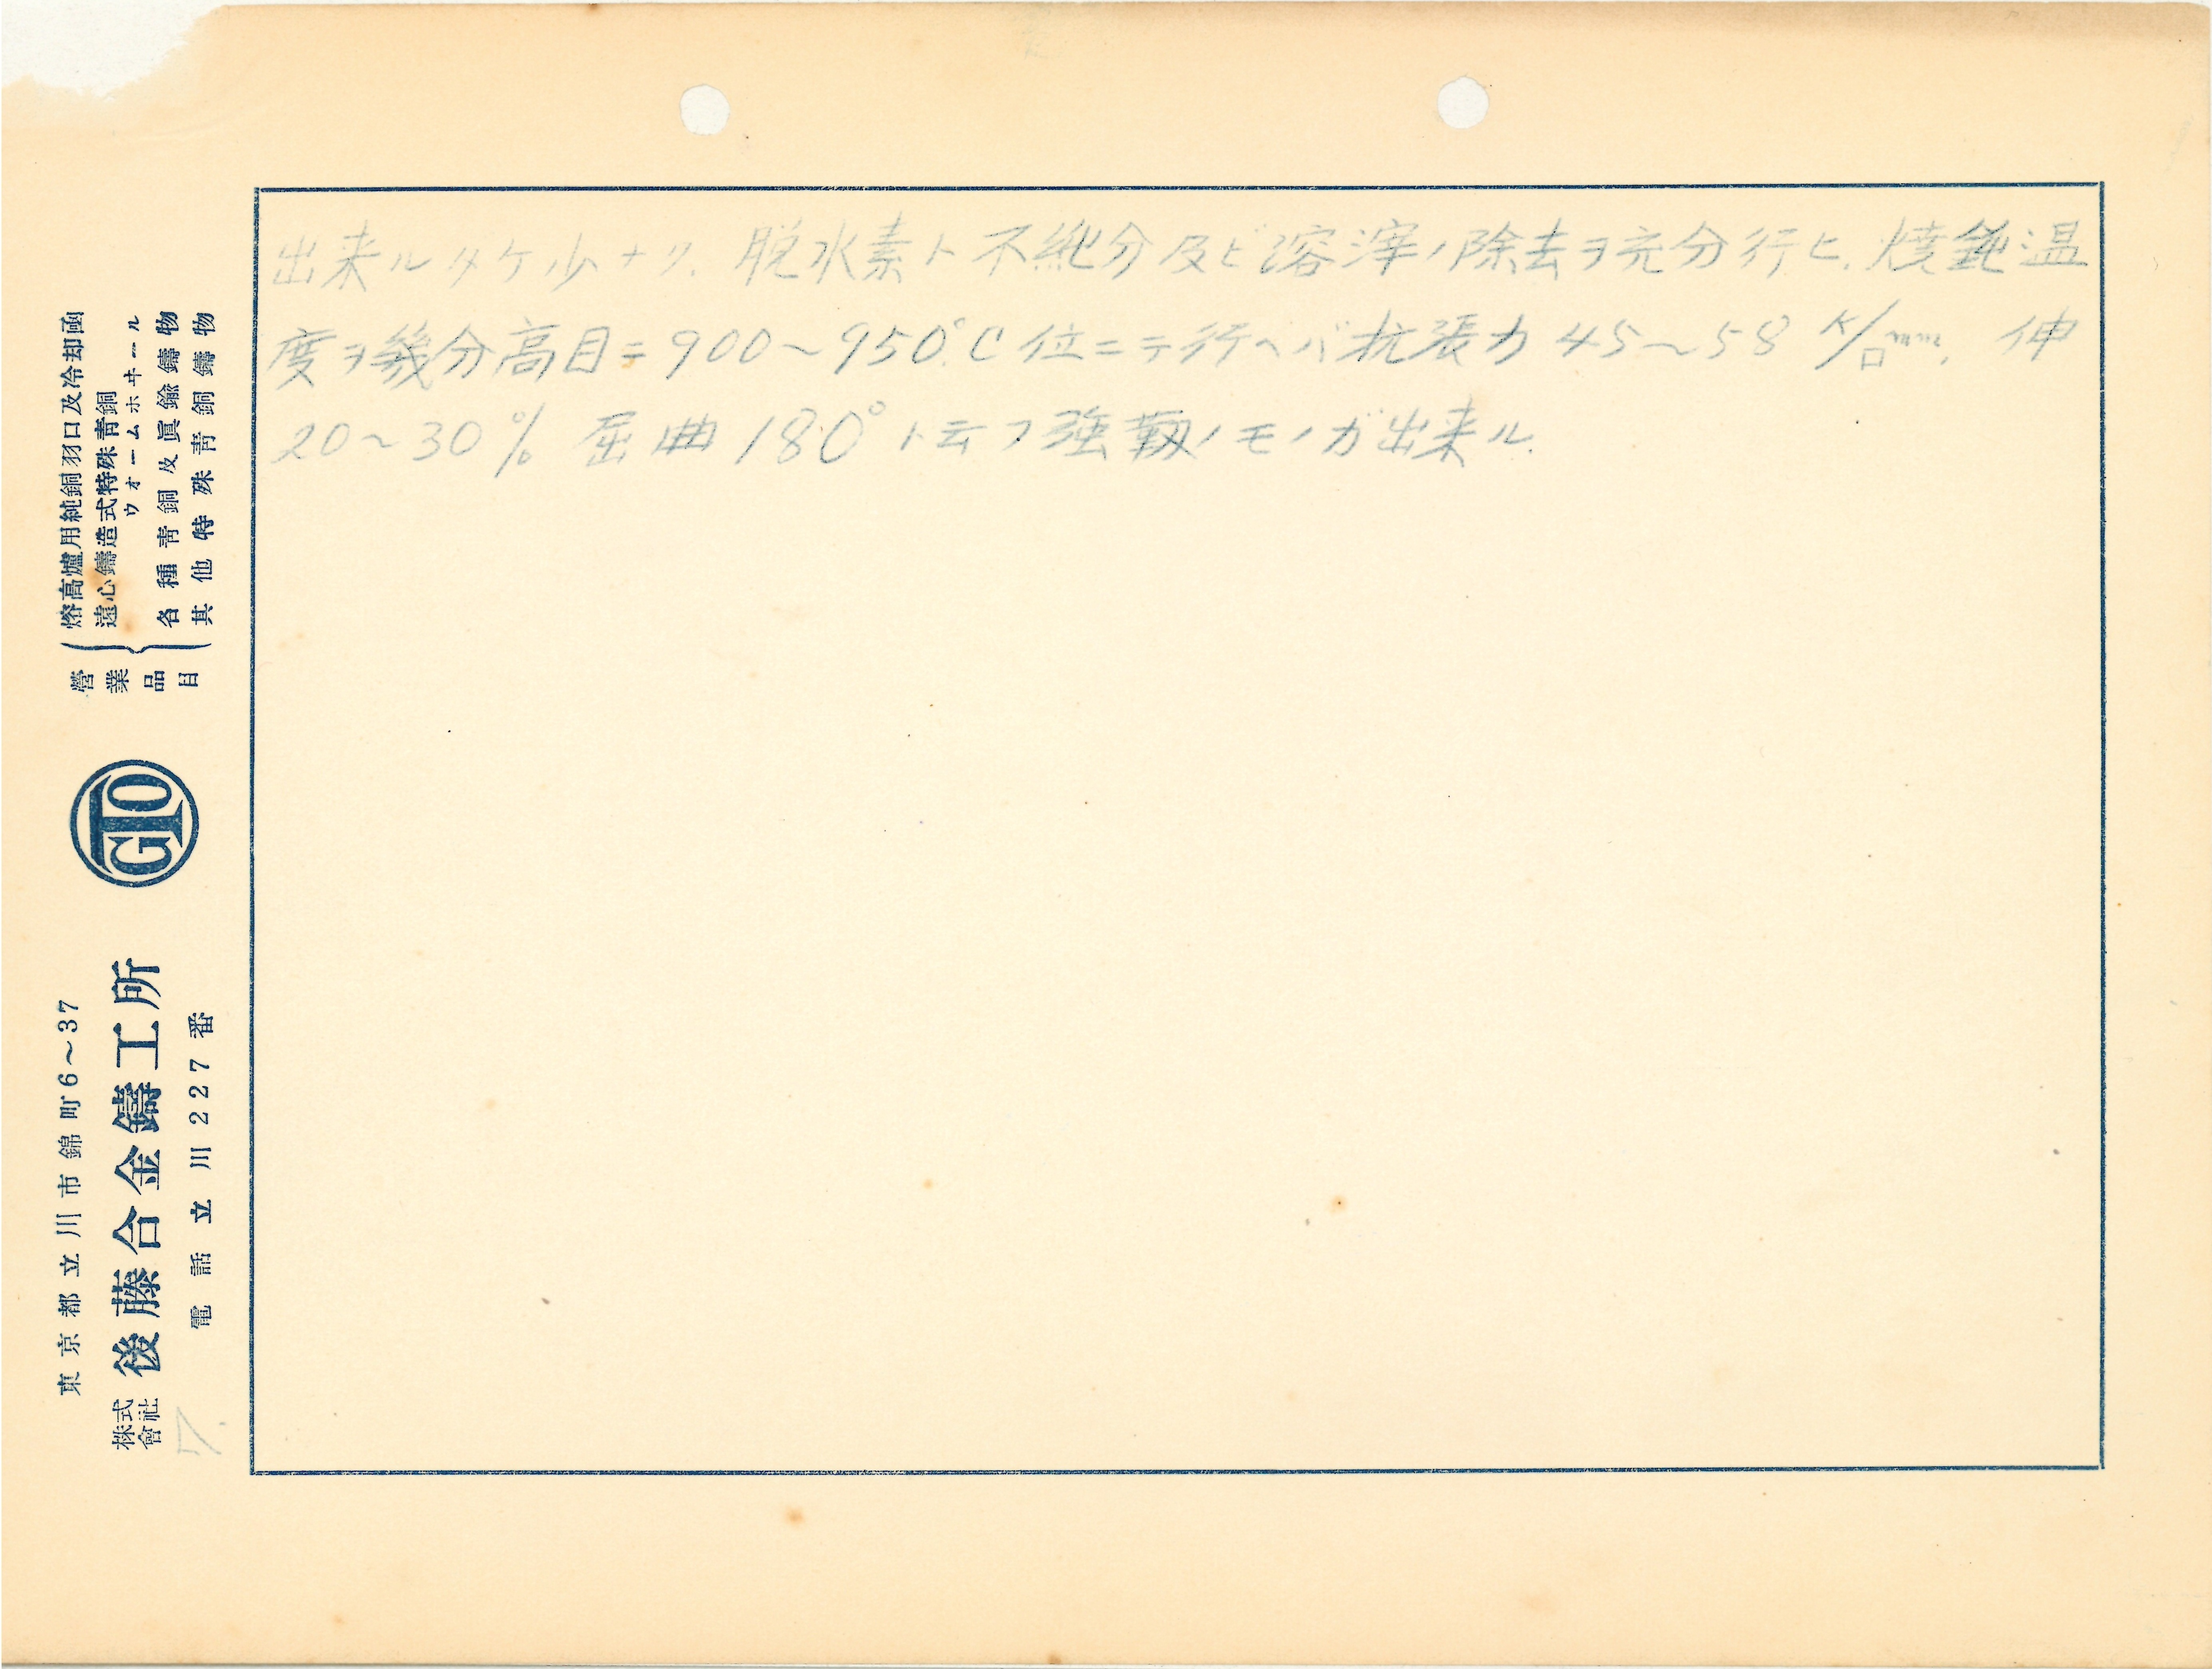 出来ルタケ少ナク、脱水素ト不純分及ビ溶滓ノ除去ヲ充分行ヒ、焼鈍温
度ヲ幾分高目ニ900～950°C位ニテ行ヘバ抗張力45～58 K/□mm、伸
20～30% 屈曲180°ト云フ強靱ノモノガ出来ル.
營業品目
熔高爐用純銅羽口及冷却函
遠心鑄造式特殊青銅
ウオームホヰール
各種青銅及眞鍮鑄物
其他特殊青銅鑄物
GTO
東京都立川市錦町6～37
株式會社 後藤合金鑄工所
電話立川227番
7.